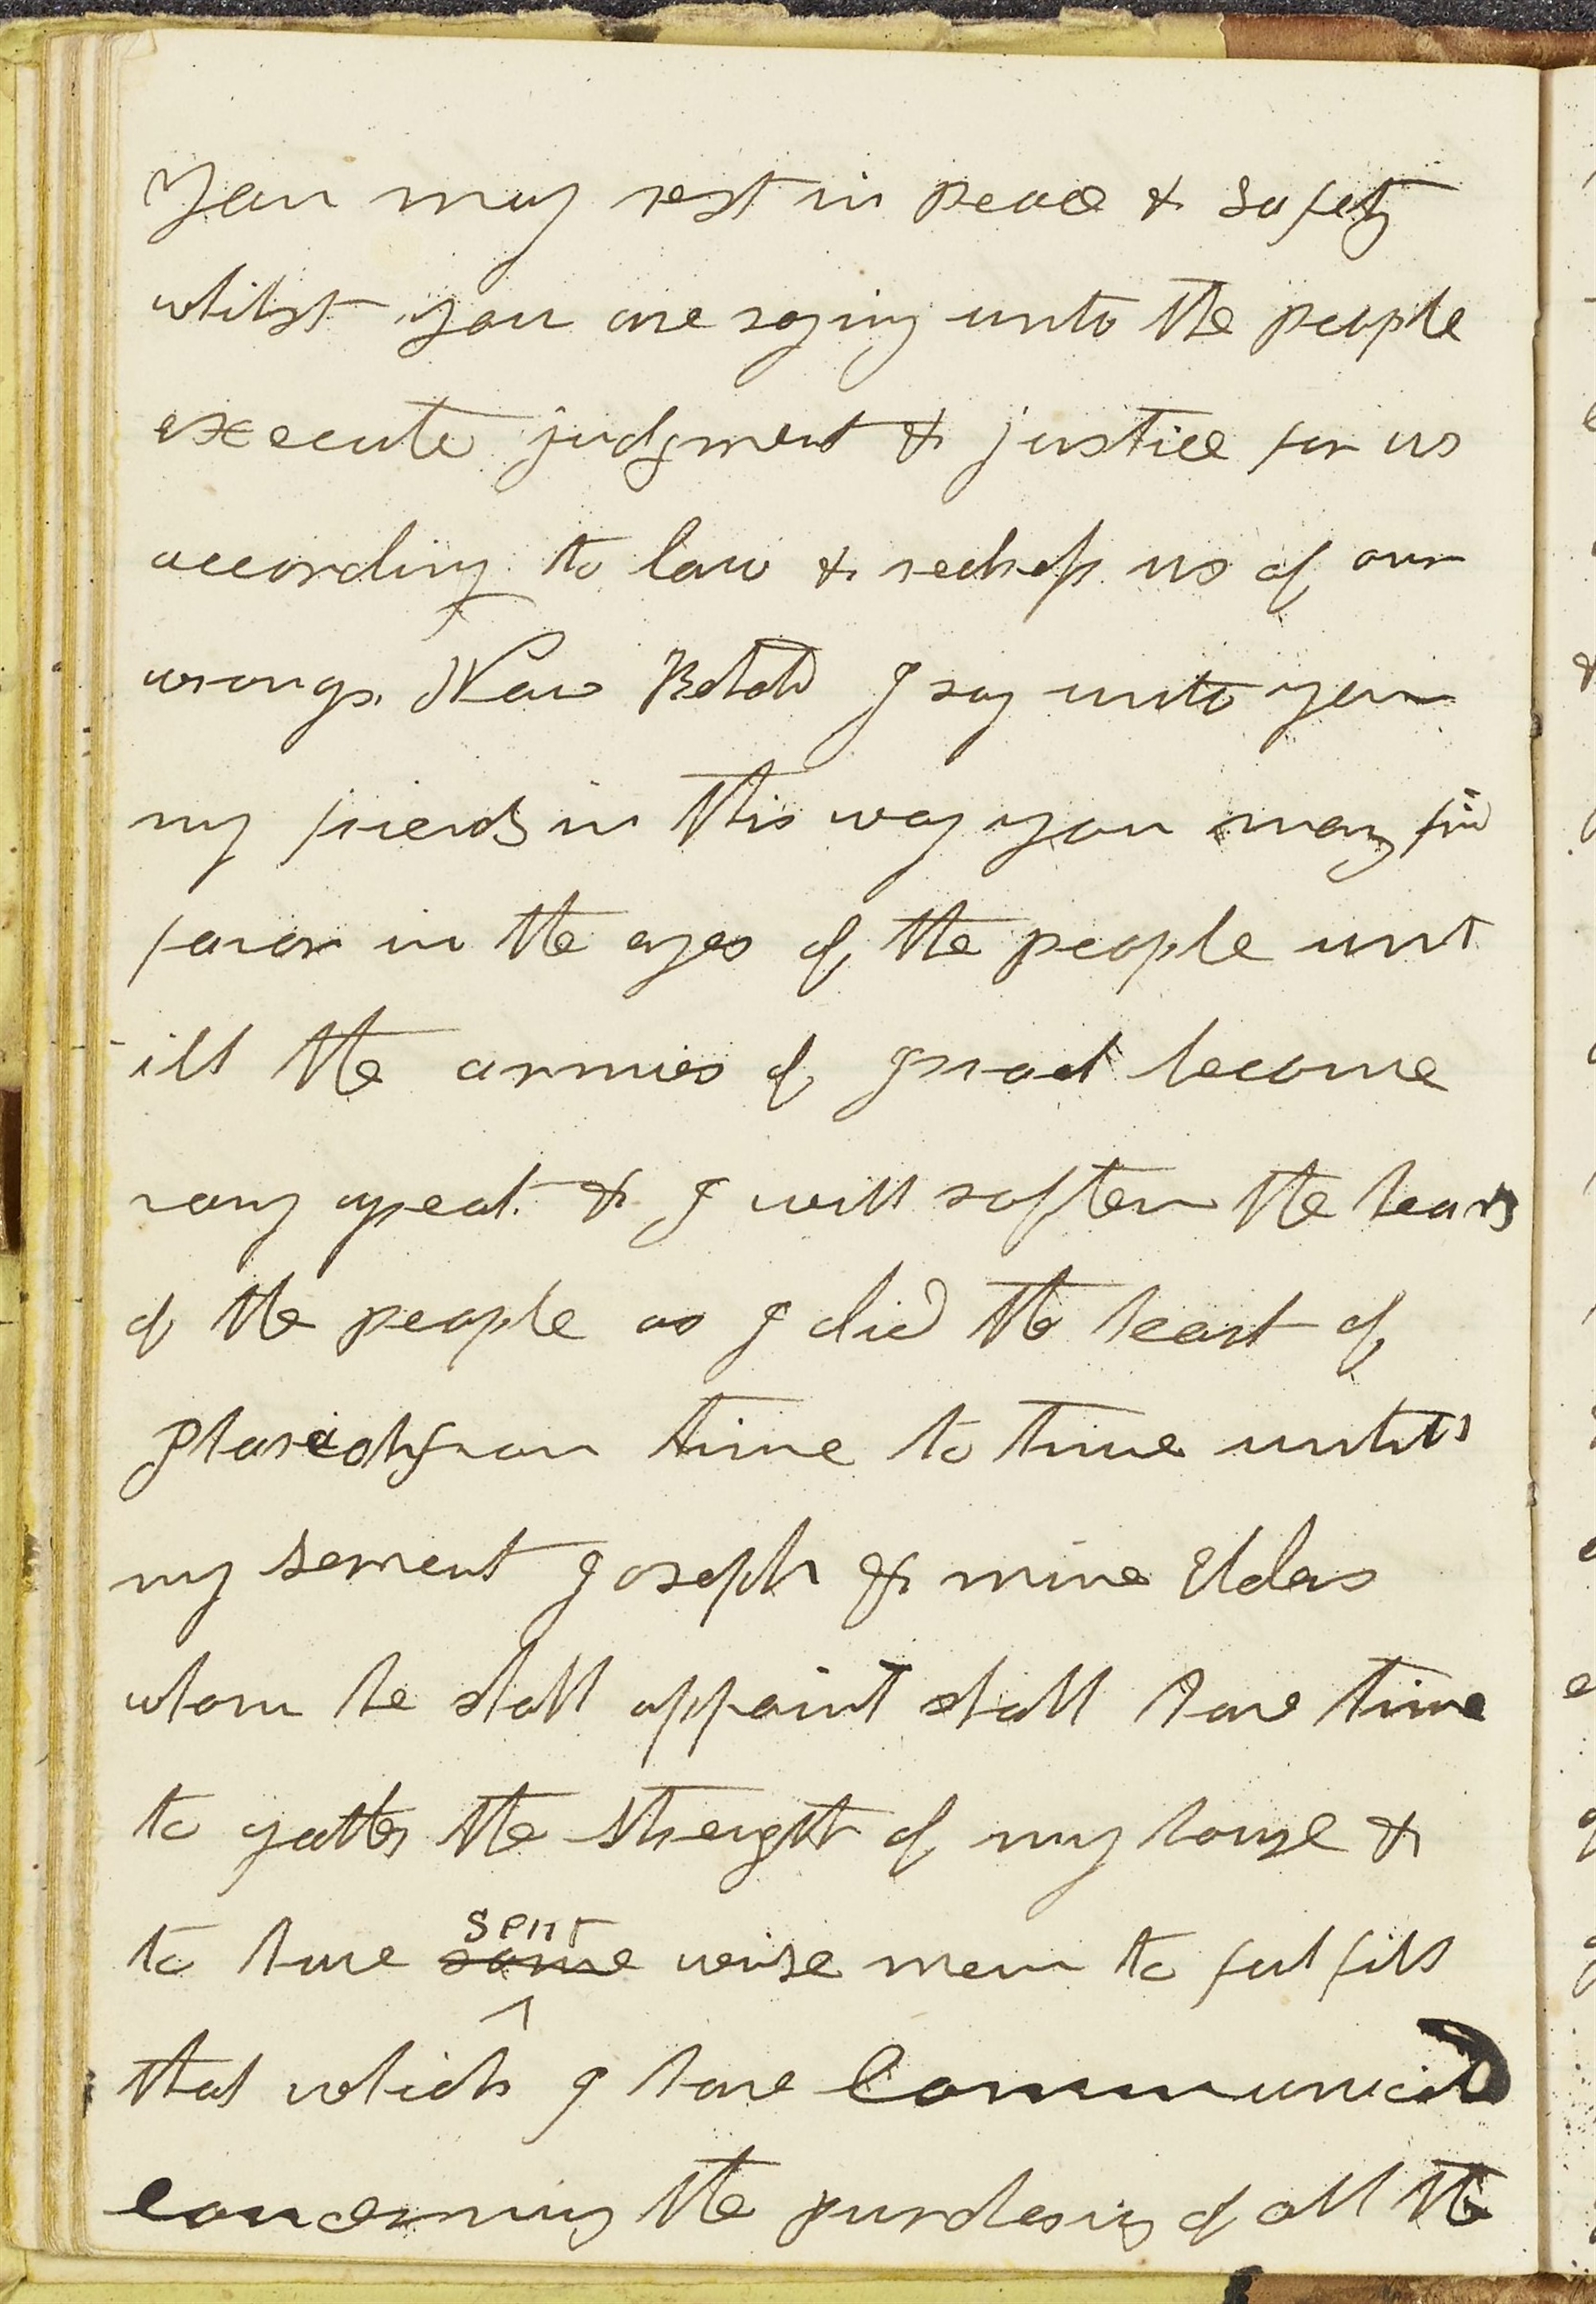 You may rest in peace & safety
whilst you are saying unto the people
execute judgment & justice for us
according to law & redress us of our
wrongs. Now Behold I say unto you
my friends in this way you may find
favor in the eyes of the people unt
ill the armies of Israel become
vary great & I will soften the hearts
of the people as I did the heart of
Pharaoh from time to time untill
my servent Joseph & mine Elders
whom he shall appoint shall have time
to gather the strength of my house &
to have some sent wise men to fulfill
that which I have Communicated
concerning the purchesing of all the